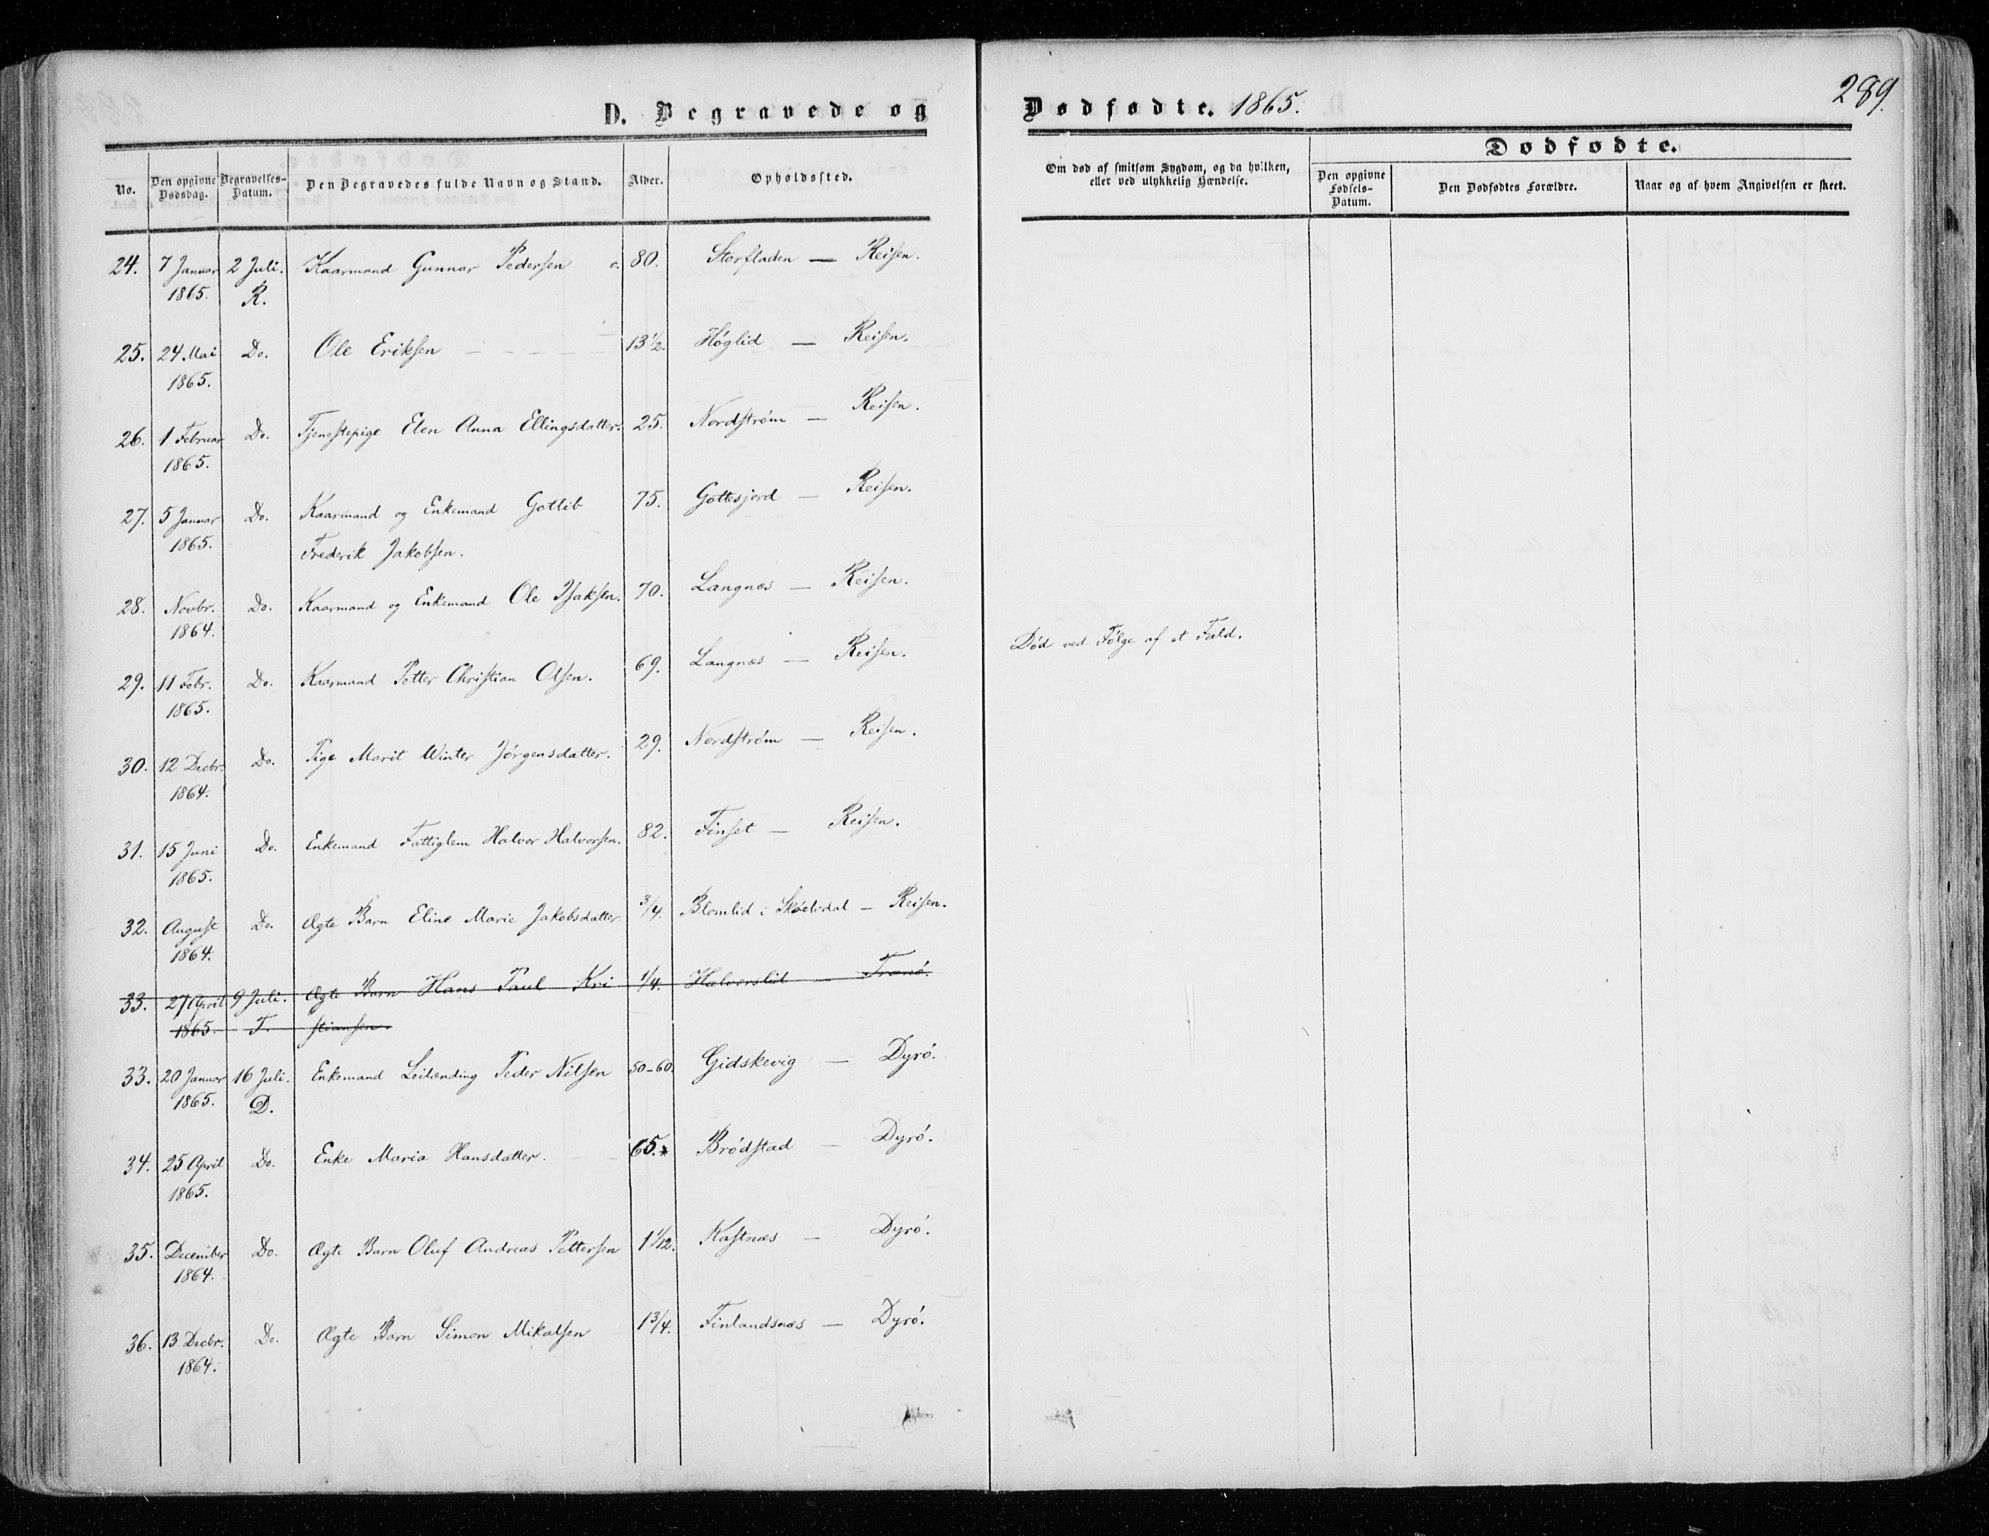 289.
D. Begravede og Dødfødte. 1865.
No. Den opgivne Dødsdag. Begravelses-Datum. Den Begravedes fulde Navn og Stand. Alder. Opholdssted. Om død af smitsom Sygdom, og da hvilken, eller ved ulykkelig Hændelse. Dødfødte.
Den opgivne Fødsels-Datum. Den Dødfødtes Forældre. Naar og af hvem Angivelsen er skeet.
24. 7 Januar 2 Juli. Kaarmand Gunnar Pedersen c. 80. Storfladen — Reisen.
1865. R.
25. 24 Mai Do. Ole Eriksen 13 1/2. Høglid — Reisen.
1865.
26. 1 Februar Do. Tjenestepige Elen Anna Ellingsdatter. 25. Nordstrøm — Reisen.
1865.
27. 5 Januar Do. Kaarmand og Enkemand Gottlib 75. Gottesjord — Reisen.
1865. Frederik Jakobsen.
28. Novbr. Do. Kaarmand og Enkemand Ole Isaksen. 70. Langnæs — Reisen.
1864.
29. 11 Febr. Do. Kaarmand Petter Christian Olsen. 69. Langnæs — Reisen. Død ved Følge af et Fald.
1865.
30. 12 Decbr. Do. Pige Marit Winter Jørgensdatter. 29. Nordstrøm — Reisen.
1864.
31. 15 Juni Do. Enkemand Fattiglem Halvor Halvorsen. 82. Finset — Reisen.
1865.
32. August Do. Ægte Barn Eline Marie Jakobsdatter 3/4. Blomlid i Skøelvdal — Reisen.
1864.
33. 27 April 9 Juli. Ægte Barn Hans Paul Kri 1/4. Halvorslid Tranø.
1865. T. stiansen.
33. 20 Januar 16 Juli. Enkemand Leilænding Peder Nilsen 50-60. Gidskevig — Dyrø.
1865. D.
34. 25 April Do. Enke Maria Hansdatter. 65. Brødstad — Dyrø.
1865.
35. December Do. Ægte Barn Oluf Andreas Pettersen 1 1/12. Kastnæs — Dyrø.
1864.
36. 13 Decbr. Do. Ægte Barn Simon Mikalsen 1 3/4. Finlandsnæs — Dyrø.
1864.